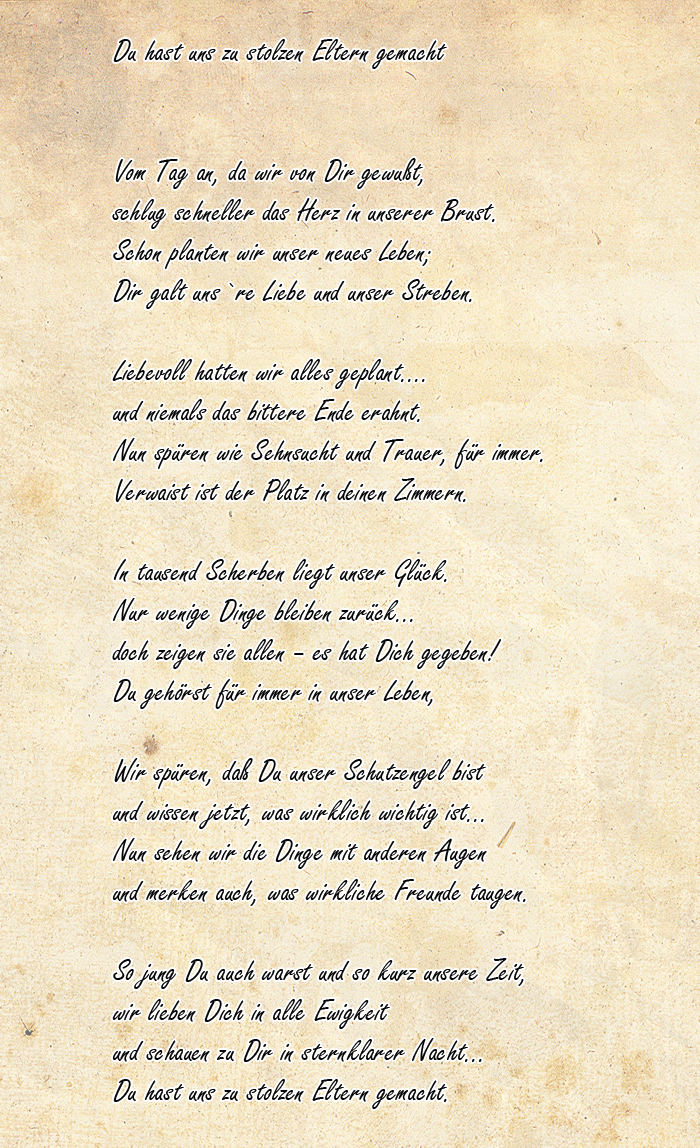 Du hast uns zu stolzen Eltern gemacht
Vom Tag an, da wir von Dir gewußt,
schlug schneller das Herz in unserer Brust.
Schon planten wir unser neues Leben;
Dir galt uns `re Liebe und unser Streben.
Liebevoll hatten wir alles geplant....
und niemals das bittere Ende erahnt.
Nun spüren wie Sehnsucht und Trauer, für immer.
Verwaist ist der Platz in deinen Zimmern.
In tausend Scherben liegt unser Glück.
Nur wenige Dinge bleiben zurück...
doch zeigen sie allen – es hat Dich gegeben!
Du gehörst für immer in unser Leben,
Wir spüren, daß Du unser Schutzengel bist
und wissen jetzt, was wirklich wichtig ist...
Nun sehen wir die Dinge mit anderen Augen
und merken auch, was wirkliche Freunde taugen.
So jung Du auch warst und so kurz unsere Zeit,
wir lieben Dich in alle Ewigkeit
und schauen zu Dir in sternklarer Nacht...
Du hast uns zu stolzen Eltern gemacht.